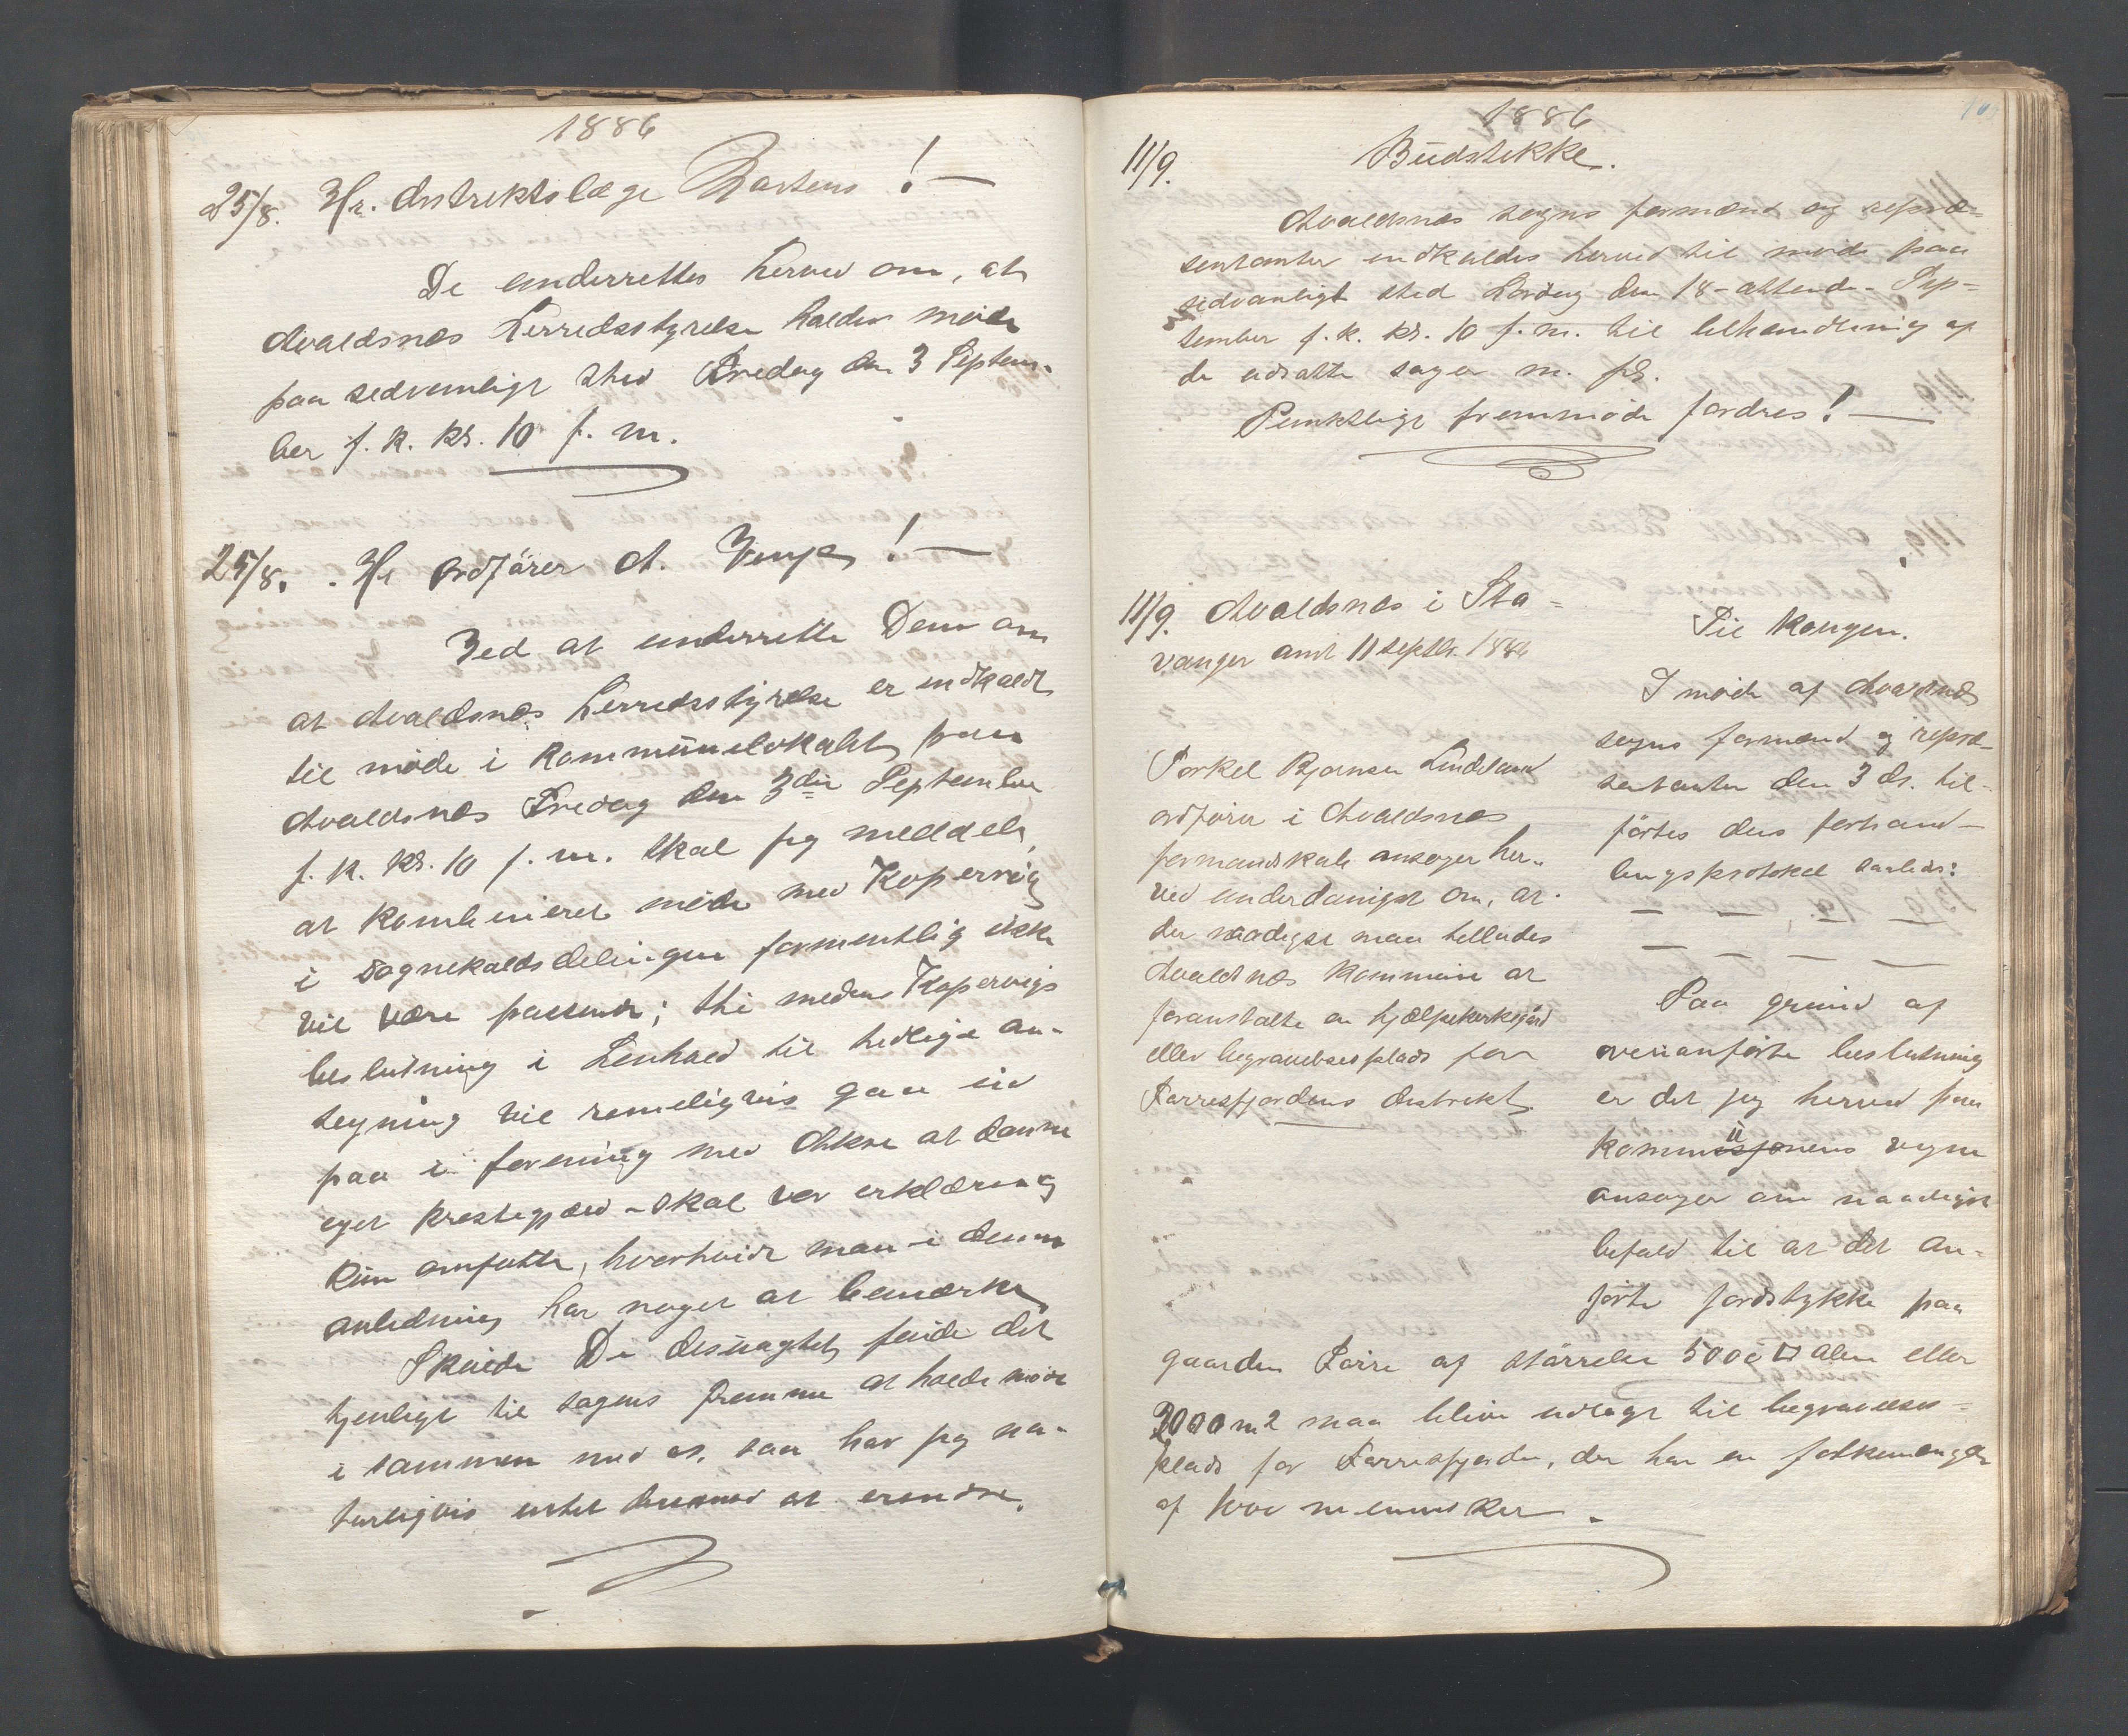 1886
25/8. Hr. distriktslæge Bartens! —
De underrettes herved om, at
Avaldsnes Herredsstyrelse holder møde
paa sedvanligt sted Fredag den 3 Septem-
ber f. k. kl. 10 f. m.
25/8. Hr ordfører A. Venge! —
Ved at underrette Dem om
at Avaldsnes Herredsstyrelse er indkaldt
til møde i kommunelokalet paa
Avaldsnes Fredag den 3die September
f. k. kl. 10 f. m. skal jeg meddele,
at kombineret møde med Kopervig
i sognekaldsdelingen formentlig ikke
vil være passende; thi medens Kopervigs
beslutning i Henhold til tidlige an-
tegning vil rimeligvis gaa ud
paa i forening med Akre at danne
eget prestegjæld - skal vor erklæring
kun omfatte, hvorhvidt man i denne
anledning har noget at bemærke.
Skulde De desuagtet finde det
tjenligt til sagens fremme at holde møde
i sammen med os, saa har jeg na-
turligvis intet derimod at erindre.
1886
11/9. Budstikke.
Avaldsnes sogns formænd og repræ-
sentanter indkaldes herved til møde paa
sedvanligt sted Lørdag den 18-attende- Sep-
tember f. k. kl. 10 f. m. til behandling af
de udsatte sager m. fl.
Punktligt fremmøde fordres! —
11/9. Avaldsnes i Sta-
vanger amt 11 septbr. 1886
Torkel Bjørnsen Lindeland
ordfører i Avaldsnes
formandskab ansøger her-
ved underdanigst om, at
der naadigst maa tillades
Avaldsnes kommune at
foranstalte en hjælpekirkegård
eller begravelsesplads for
Førresfjordens distrikt
Til Kongen.
I møde af Avaldsnes
sogns formænd og repræ-
sentanter den 3 ds. til-
førtes dens forhand-
lingsprotokol saaledes:
— — , — —
— — — —
Paa grund af
ovenanførte beslutning
er det jeg herved paa
kommunens vegne
ansøger om naadigst
befald til at det an-
førte jordstykke paa
gaarden Førre af størrelse 5000 □ alen eller
2000 m2 maa blive udlagt til begravelses-
plads for Førresfjorden, der har en folkemængde
af 1000 mennesker.